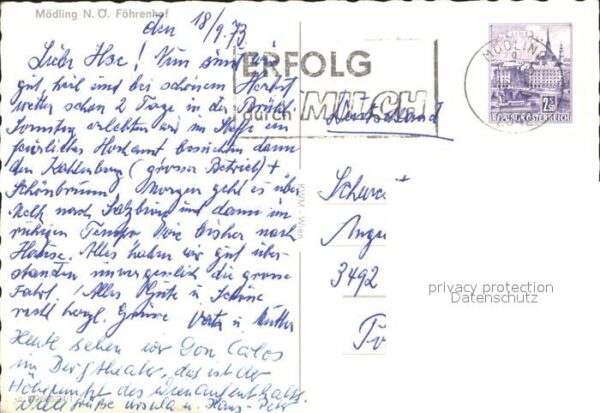 Mödling N. Ö. Föhrenhof
den 18/9.73
ERFOLG
durch MILCH
MÖDLING
LINZ
REPUBLIK ÖSTERREICH
Lieber Hse! Nun sind wir
gut, heil und bei schönem Herbst
wetter schon 2 Tage in der Brühl
Sonntag erlebten wir im
feierliches Hochamt besuchten dann
den Kahlenberg (grosser Betrieb) +
Schönbrunn. Morgen geht es über
Melk nach Salzburg und dann im
ruhigen Tempo wie bisher nach
Hause. Alles haben wir gut über-
standen unvergesslich die grosse
Fahrt! Alles Gute u. Schöne
recht herzl. Grüsse Vater u. Mutter
Heute sehen wir Don Carlos
im Burgtheater, das ist der
Höhepunkt des Wienaufenthalts.
Viele Grüße Ursula u. Hans-Peter
Deutschland
3492
KVM - Wien
privacy protection
Datenschutz